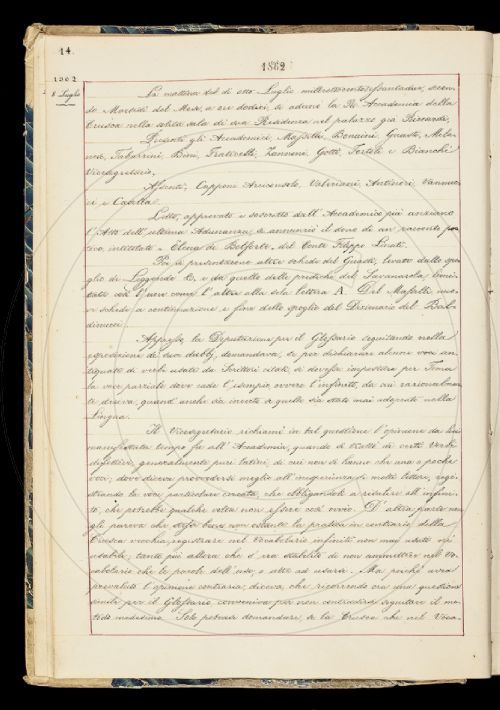 14.
1862
1862
8 Luglio
La mattina del dì otto Luglio milleottocentosessantadue, secon-
do Martedì del Mese, a ore dodici, si adunò la R. Accademia della
Crusca nella solita sala di sua Residenza nel palazzo già Riccardi.
Presenti gli Accademici, Masselli, Bonaini, Guasti, Mila-
nesi, Tabarrini, Bini, Fraticelli, Zannoni, Gotti, Tortoli e Bianchi
Vicesegretario.
Assenti, Capponi Arciconsolo, Valeriani, Antinori, Vannuc-
ci, e Casella.
Letto, approvato e soscritto dall'Accademico più anziano
l'Atto dell'ultima Adunanza, si annunziò il dono di un racconto
intitolato Elena di Belforte, del Conte Filippo Linati.
Poi, la presentazione altre schede del Guasti, levate dallo spo-
glio di Leggende e da quello delle prediche del Savonarola limi-
tate così l'une come l'altre alla sola lettera A. Del Masselli
schede a continuazione e fine dello spoglio del Dizionario del Bal-
dinucci.
Appresso la Deputazione per il Glossario seguitando nella
esposizione dei suoi dubbj, domandava, se per dichiarare alcune voci an-
tiquate di verbi usati da Scrittori citati, si dovesse impostare per Tema
la voce parziale dove cade l'esempio, ovvero l'infinito, da cui razionalmente
si deriva, quand'anche sia incerto se quello sia stato mai adoprato nella
lingua.
Il Vicesegretario richiamò in tal questione l'opinione da lui
manifestata tempo fa all'Accademia, quando si trattò di certi Verbi
difettivi, generalmente pure latini, di cui non si hanno che una o poche
voci; dove diceva provvedersi meglio all'inesperienza di molti lettori, regi-
strando la voce particolare cercata, che obbligandoli a risalire all'infini-
to, che potrebbe qualche volta non essere così ovvio. D'altra parte
gli pareva che stesse bene la pratica in contrario della
Crusca vecchia, registrare nel Vocabolario infiniti non mai usati né
usabili; tanto più allora che s'era stabilito di non ammetter nel Vo-
cabolario che le parole dell'uso, o atte ad usarsi. Ma poiché avea
prevaluto l'opinione contraria, diceva, che ricorrendo ora una questione
simile per il Glossario, conveniva per non contradirsi seguitare il me-
todo medesimo. Solo potersi domandare, se la Crusca che nel Voca-